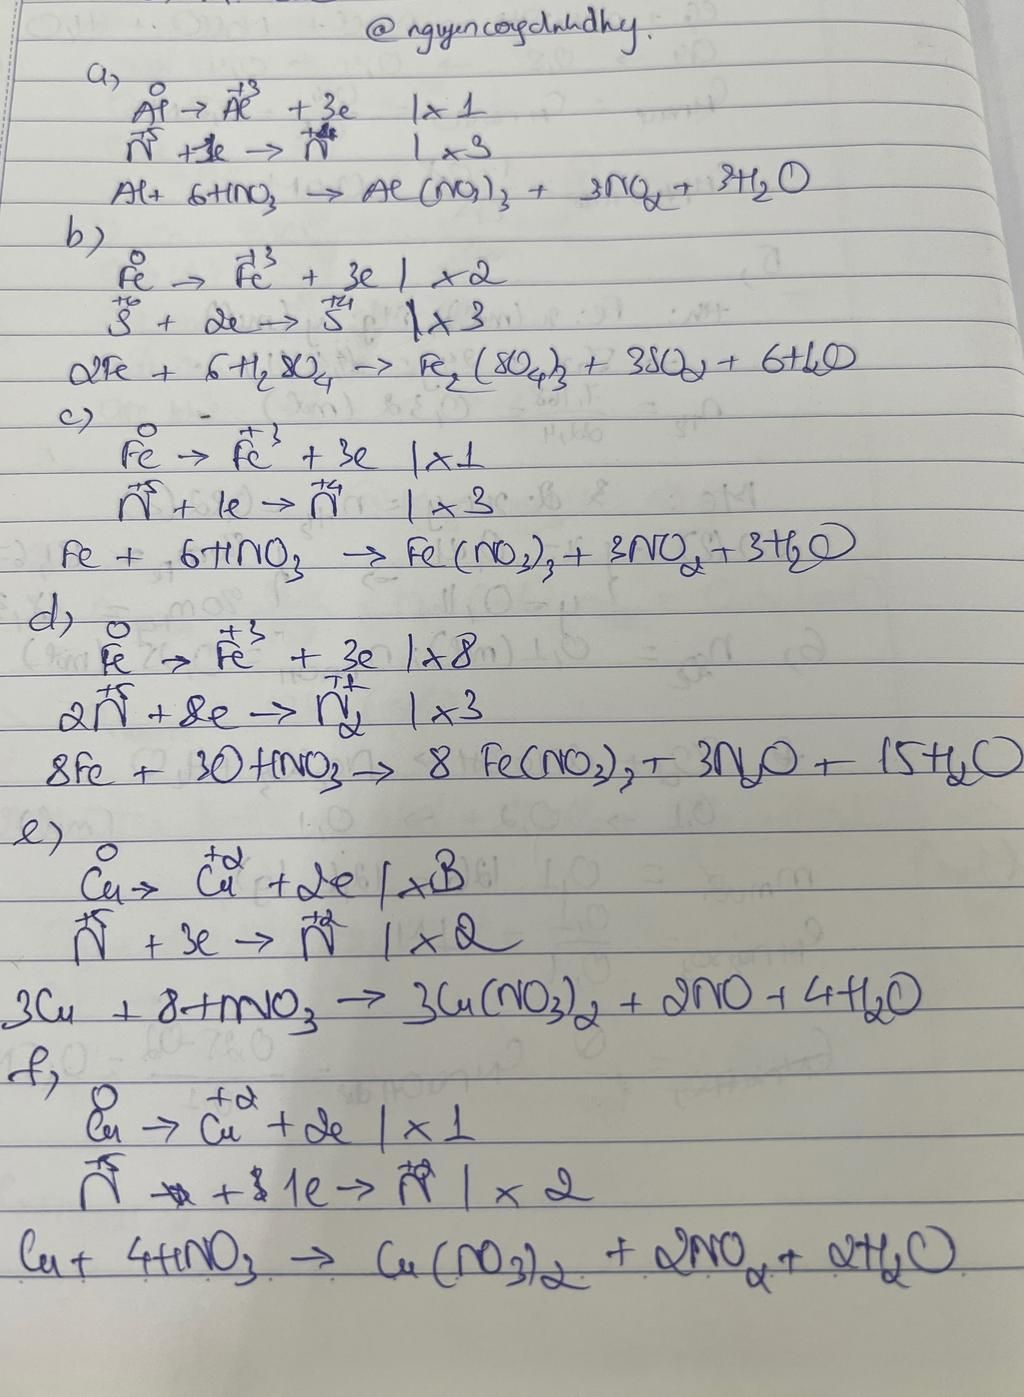 @nguyencongdinhdhy.
a)
Al⁰ → Al⁺³ + 3e | x 1
N⁺⁵ + 1e → N⁺⁴ | x 3
Al + 6HNO₃ → Al(NO₃)₃ + 3NO₂ + 3H₂O
b)
Fe⁰ → Fe⁺³ + 3e | x 2
S⁺⁶ + 2e → S⁺⁴ | x 3
2Fe + 6H₂SO₄ → Fe₂(SO₄)₃ + 3SO₂ + 6H₂O
c)
Fe⁰ → Fe⁺³ + 3e | x 1
N⁺⁵ + 1e → N⁺⁴ | x 3
Fe + 6HNO₃ → Fe(NO₃)₃ + 3NO₂ + 3H₂O
d)
Fe⁰ → Fe⁺³ + 3e | x 8
2N⁺⁵ + 8e → N₂⁺¹ | x 3
8Fe + 30HNO₃ → 8Fe(NO₃)₃ + 3N₂O + 15H₂O
e)
Cu⁰ → Cu⁺² + 2e | x 3
N⁺⁵ + 3e → N⁺² | x 2
3Cu + 8HNO₃ → 3Cu(NO₃)₂ + 2NO + 4H₂O
f)
Cu⁰ → Cu⁺² + 2e | x 1
N⁺⁵ + 1e → N | x 2
Cu + 4HNO₃ → Cu(NO₃)₂ + 2NO₂ + 2H₂O